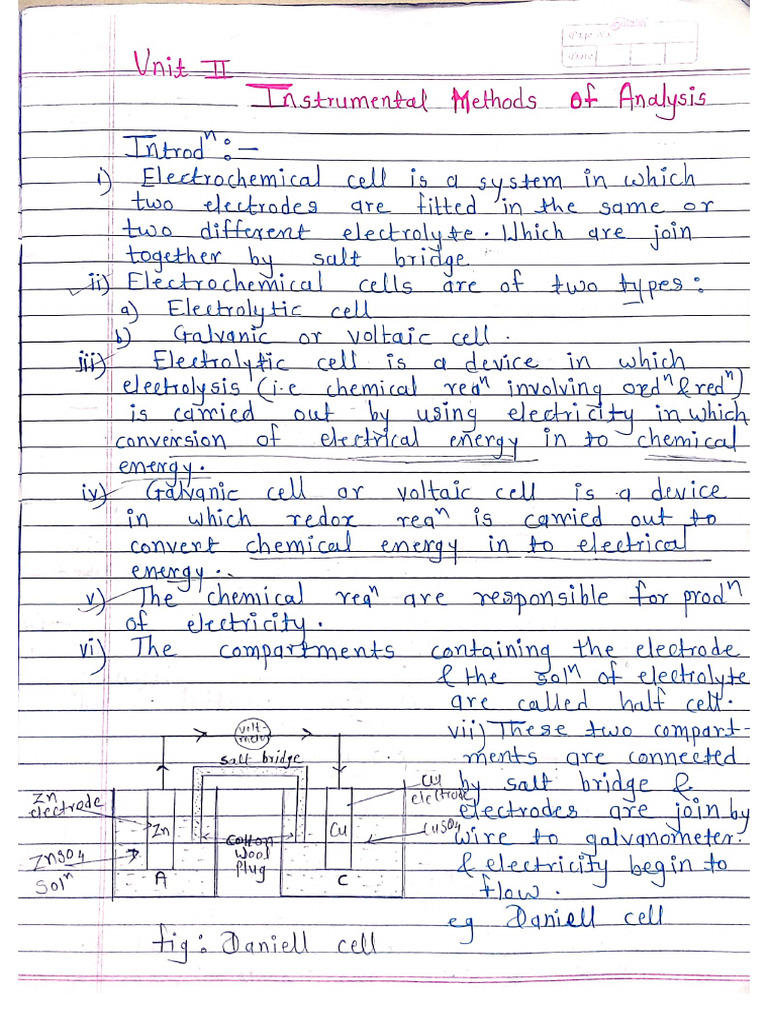 Page No.
Date
Unit II
Instrumental Methods of Analysis
Introdⁿ :-
i) Electrochemical cell is a system in which
two electrodes are fitted in the same or
two different electrolyte. Which are join
together by salt bridge
ii) Electrochemical cells are of two types:
a) Electrolytic cell
b) Galvanic or voltaic cell.
iii) Electrolytic cell is a device in which
electrolysis (i.e chemical reaⁿ involving oxdⁿ & redⁿ)
is carried out by using electricity in which
conversion of electrical energy in to chemical
energy.
iv) Galvanic cell or voltaic cell is a device
in which redox reaⁿ is carried out to
convert chemical energy in to electrical
energy.
v) The chemical reaⁿ are responsible for prodⁿ
of electricity.
vi) The compartments containing the electrode
& the solⁿ of electrolyte
are called half cell.
vii) These two compart-
ments are connected
by salt bridge &
electrodes are join by
wire to galvanometer.
& electricity begin to
flow.
eg Daniell cell
volt
meter
salt bridge
Zn
electrode
Zn
ZnSO4
Solⁿ
A
Cotton
wool
plug
Cu
C
Cu
electrode
CuSO4
fig: Daniell cell